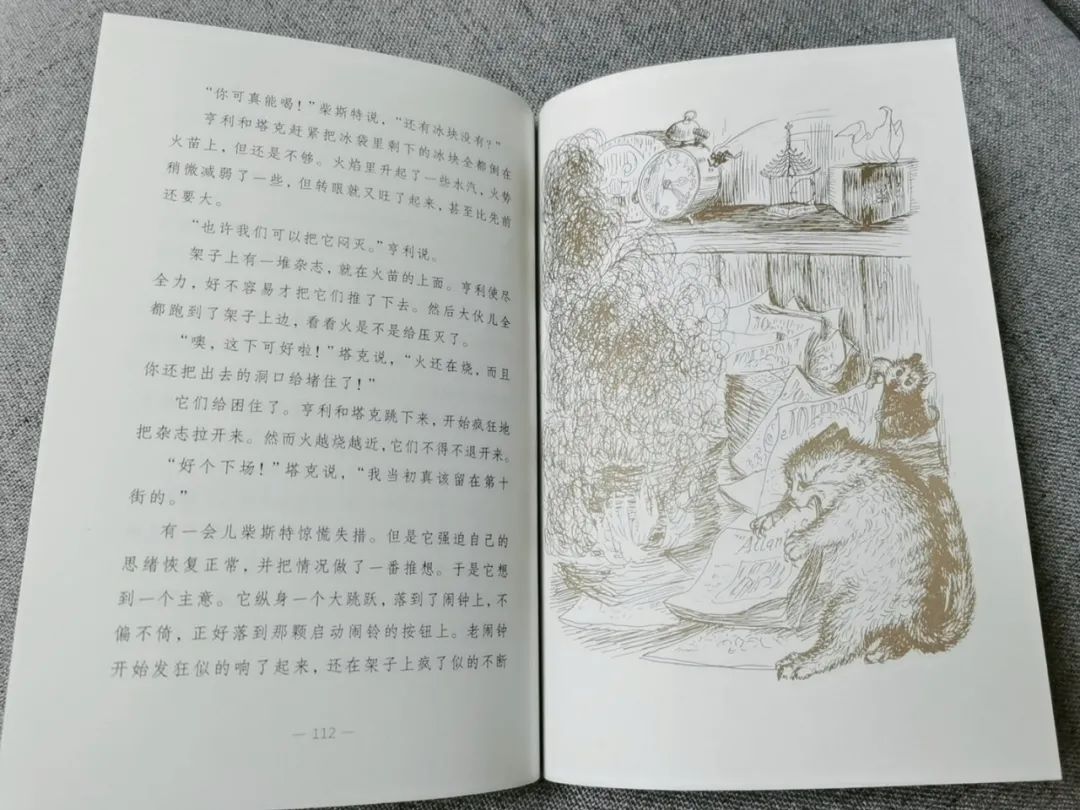 “你可真能喝！”柴斯特说，“还有冰块没有？”
亨利和塔克赶紧把冰袋里剩下的冰块全都倒在
火苗上，但还是不够。火焰里升起了一些水汽，火势
稍微减弱了一些，但转眼就又旺了起来，甚至比先前
还要大。
“也许我们可以把它闷灭。”亨利说。
架子上有一堆杂志，就在火苗的上面。亨利使尽
全力，好不容易才把它们推了下去。然后大伙儿全
都跑到了架子上边，看看火是不是给压灭了。
“噢，这下可好啦！”塔克说，“火还在烧，而且
你还把出去的洞口给堵住了！”
它们给困住了。亨利和塔克跳下来，开始疯狂地
把杂志拉开来。然而火越烧越近，它们不得不退开来。
“好个下场！”塔克说，“我当初真该留在第十
街的。”
有一会儿柴斯特惊慌失措。但是它强迫自己的
思绪恢复正常，并把情况做了一番推想。于是它想
到一个主意。它纵身一个大跳跃，落到了闹钟上，不
偏不倚，正好落到那颗启动闹铃的按钮上。老闹钟
开始发狂似的响了起来，还在架子上疯了似的不断
— 112 —